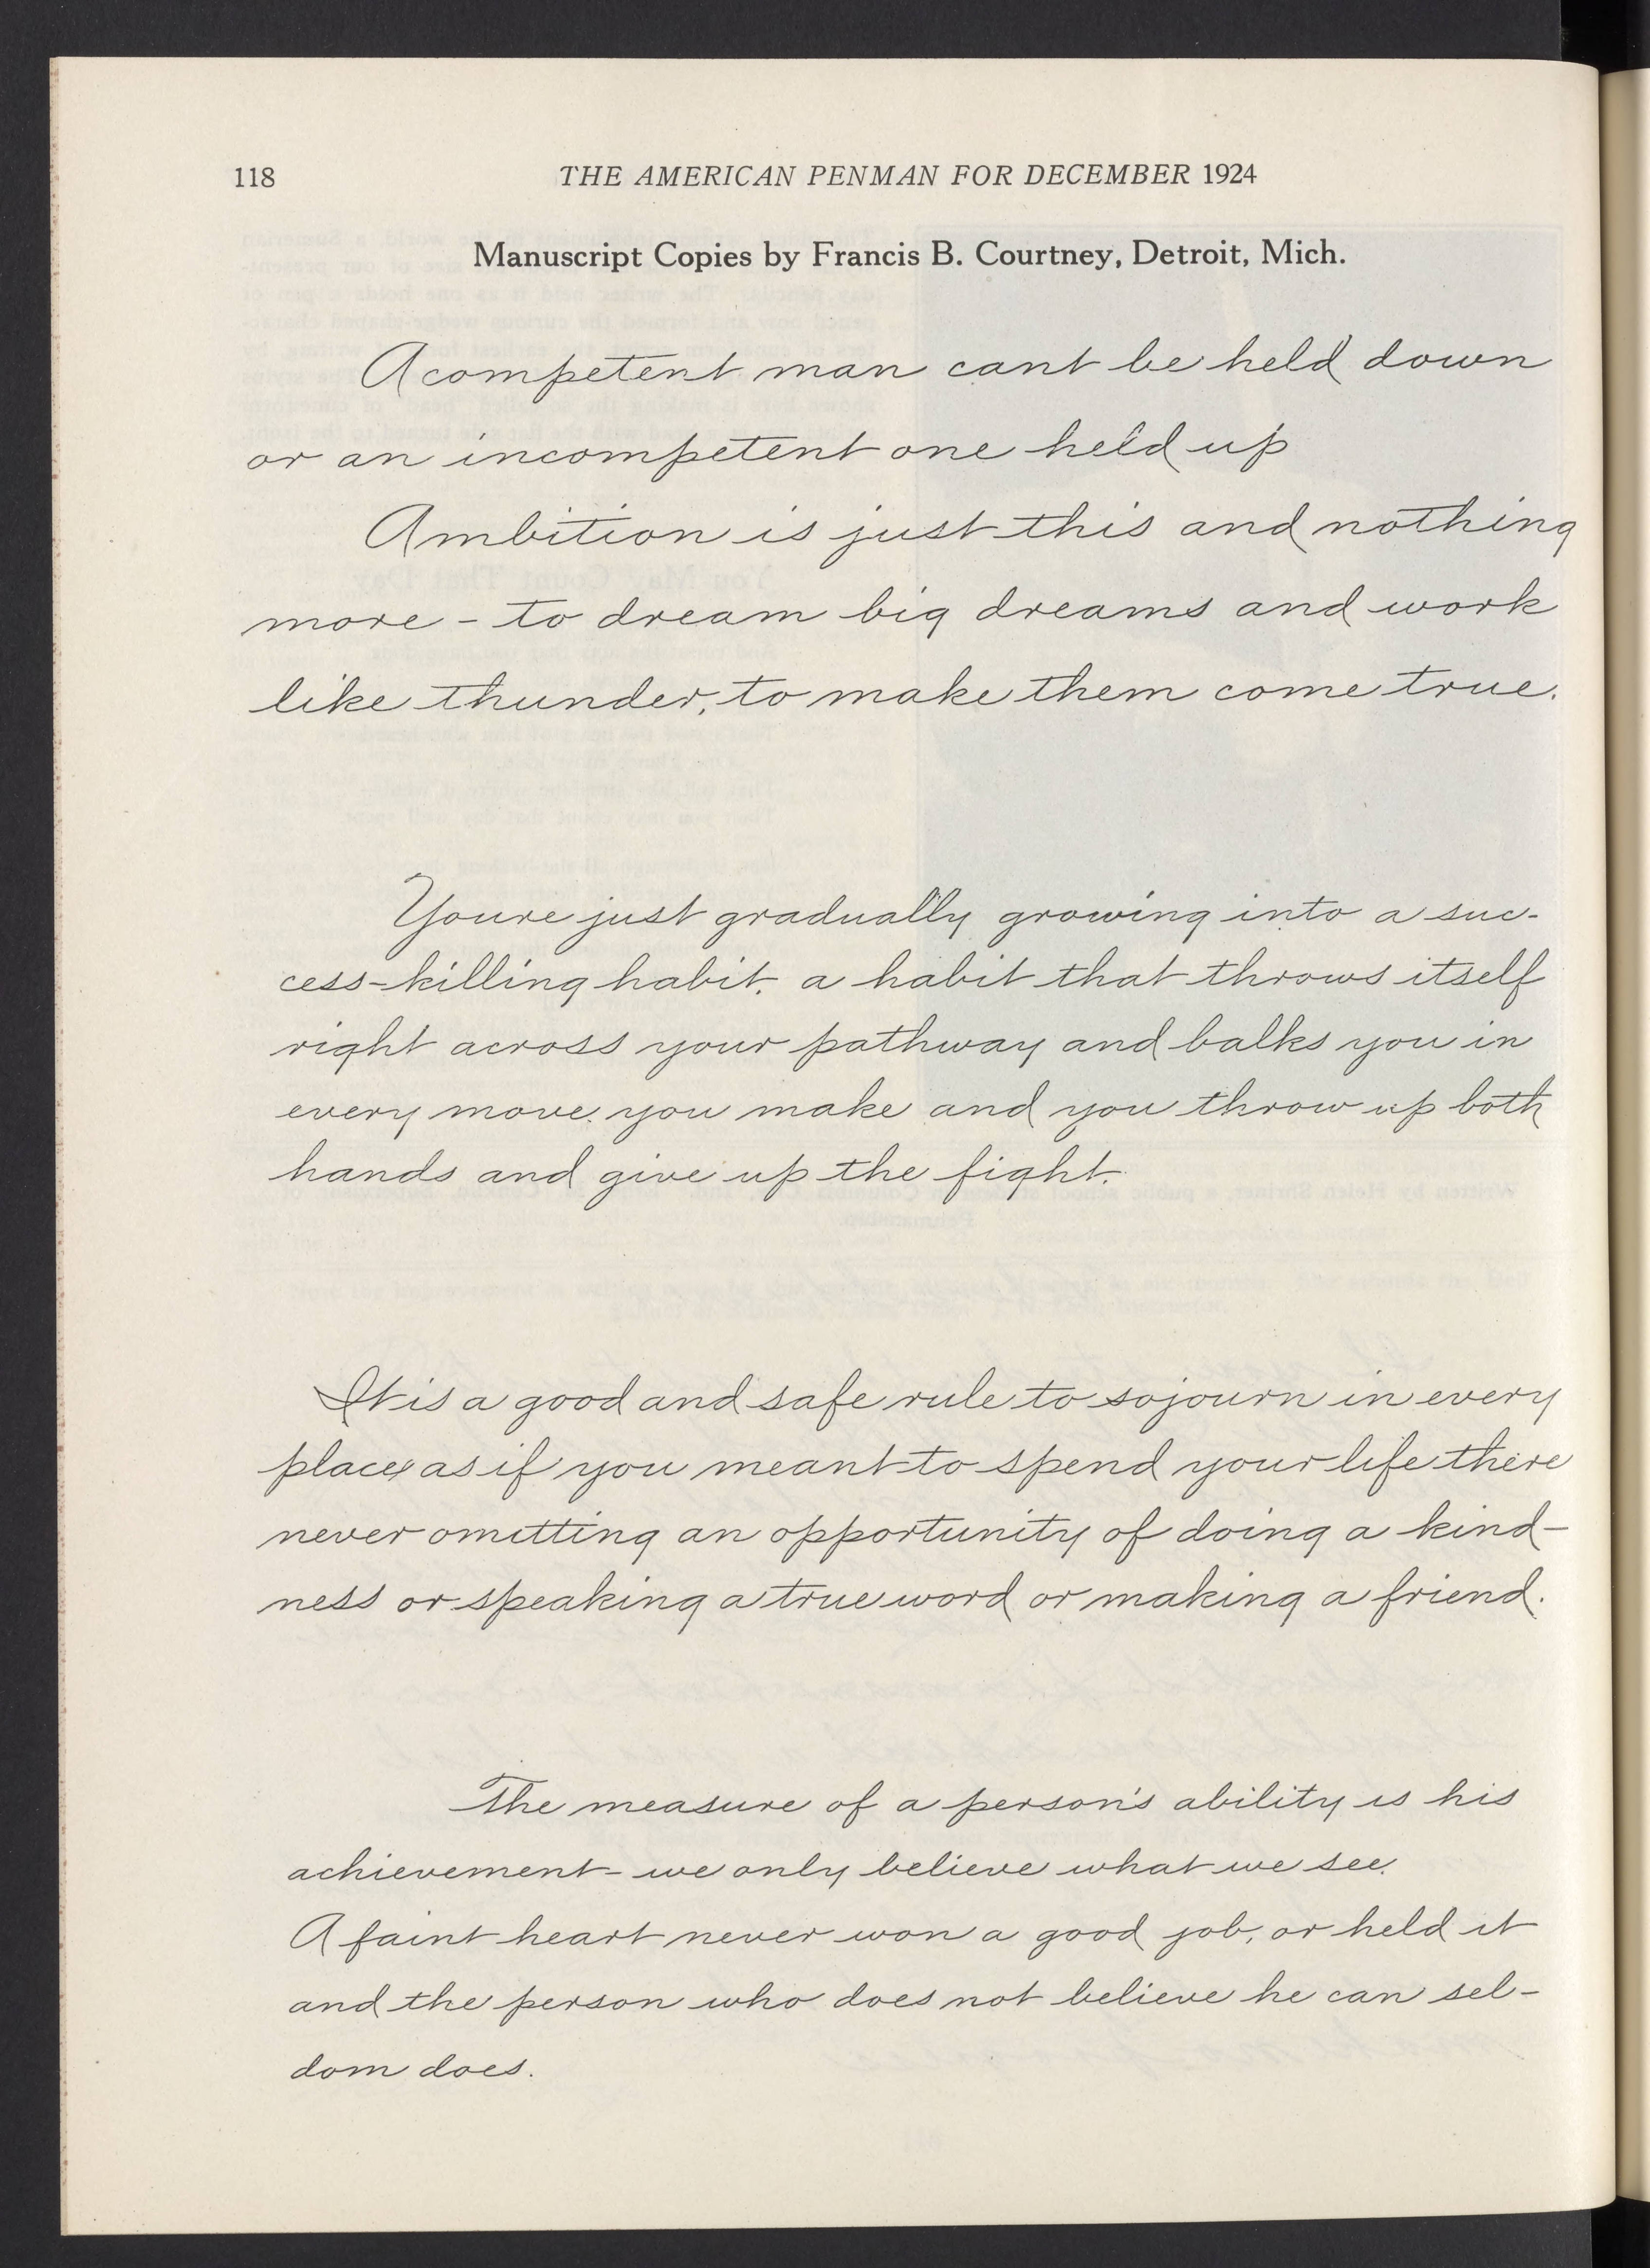 118
THE AMERICAN PENMAN FOR DECEMBER 1924
Manuscript Copies by Francis B. Courtney, Detroit, Mich.
A competent man cant be held down
or an incompetent one held up
Ambition is just this and nothing
more - to dream big dreams and work
like thunder, to make them come true.
Youre just gradually growing into a suc-
cess-killing habit, a habit that throws itself
right across your pathway and balks you in
every move you make and you throw up both
hands and give up the fight.
It is a good and safe rule to sojourn in every
place as if you meant to spend your life there
never omitting an opportunity of doing a kind-
ness or speaking a true word or making a friend.
The measure of a person's ability is his
achievement - we only believe what we see.
A faint heart never won a good job, or held it
and the person who does not believe he can sel-
dom does.